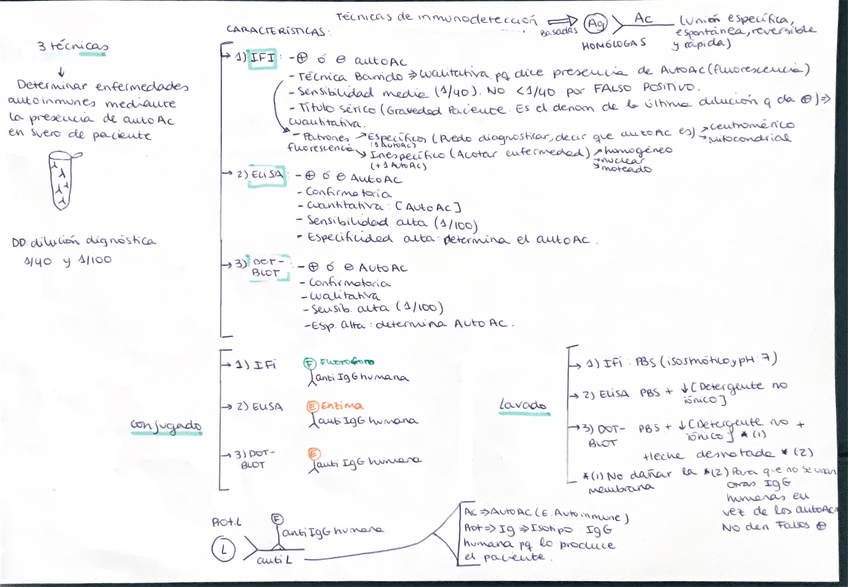 Técnicas de inmunodetección
Basadas
Ag
Ac
HOMÓLOGAS
(unión específica,
espontánea, reversible
y rápida)
3 técnicas
Determinar enfermedades
autoinmunes mediante
la presencia de autoAc
en suero de paciente
DD: dilución diagnóstica
1/40 y 1/100
CARACTERÍSTICAS:
1) IFI: - ⊕ ó ⊖ autoAc
- Técnica Barrido ⇒ Cualitativa. pq dice presencia de AutoAc (fluorescencia)
- Sensibilidad media (1/40). NO <1/40 por FALSO POSITIVO.
- Título sérico (Gravedad Paciente. Es el denom de la última dilución q da ⊕) ⇒
cuantitativa.
- Patrones → Específicos (Puedo diagnosticar, decir que autoAc es) → centromérico
→ mitocondrial
fluorescencia
(1 AutoAc)
Inespecífico (Acotar enfermedad) → homogéneo
→ nuclear
→ moteado
(+1 AutoAc)
2) ELISA: - ⊕ ó ⊖ AutoAc
- Confirmatoria
- Cuantitativa: [AutoAc]
- Sensibilidad alta (1/100)
- Especificidad alta: determina el autoAc.
3) DOT-
BLOT: - ⊕ ó ⊖ AutoAc
- Confirmatoria
- Cualitativa
- Sensib. alta (1/100)
- Esp. alta: determina AutoAc.
conjugado
1) IFI
F Fluoróforo
anti IgG humana
2) ELISA
E Enzima
anti IgG humana
3) DOT-
BLOT
E
anti IgG humana
Lavado
1) IFI: PBS (isosmótico y pH: 7)
2) ELISA PBS + ↓[Detergente no
iónico]
3) DOT-
BLOT
PBS + ↓[Detergente no +
iónico] *(1)
+leche desnatada *(2)
*(1) No dañar la
membrana
*(2) Para que no se unan
otras IgG
humanas en
vez de los autoAc
No den Falsos ⊕
Act.L
L
E
anti IgG humana
anti L
Ac ⇒ AUTOAC (E. Autoinmune)
Act ⇒ Ig ⇒ Isotipo: IgG
humana pq lo produce
el paciente.